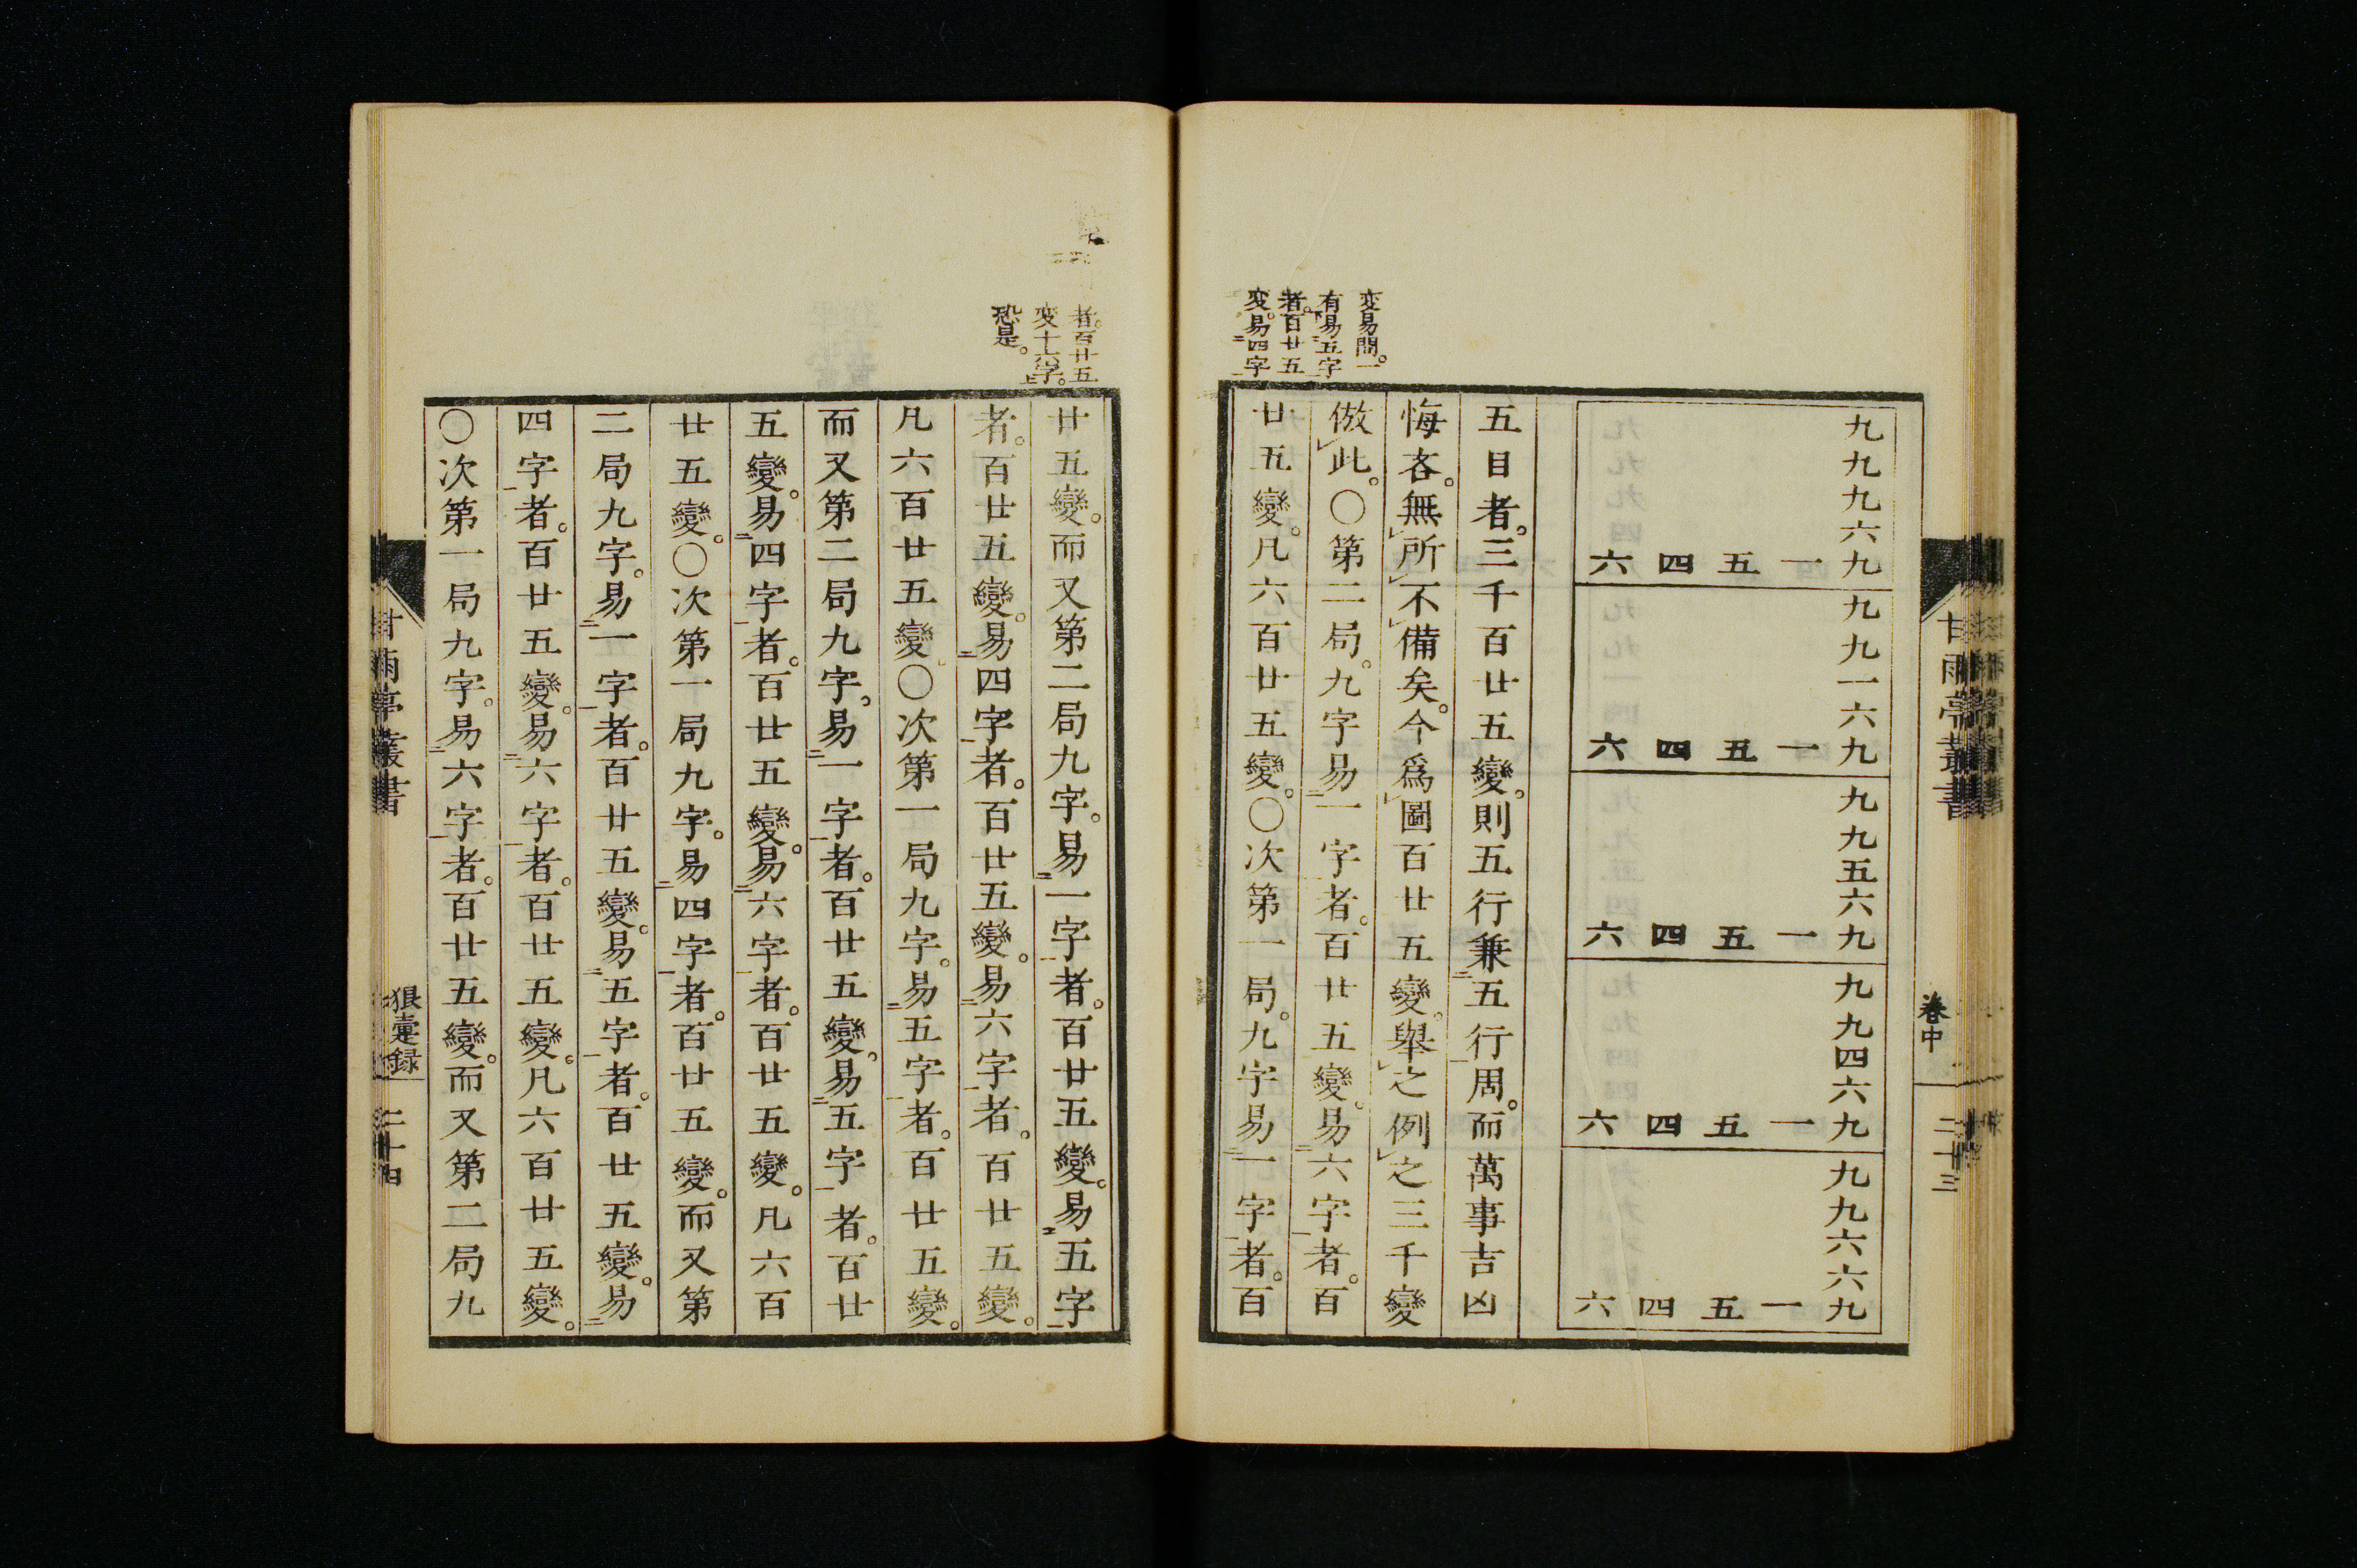 甘雨亭叢書
卷中
二十三
九九九六九
一五四六
九九一六九
一五四六
九九五六九
一五四六
九九四六九
一五四六
九九六六九
一五四六
五目者。三千百廿五變。則五行兼五行周。而萬事吉凶
悔吝。無所不備矣。今爲圖百廿五變。舉之例之三千變
倣此。〇第二局。九字易一字者。百廿五變。易六字者。百
廿五變。凡六百廿五變。〇次第一局。九字易一字者。百
変易間。一
有易五字
者。百廿五
変。易四字
者。百廿五
変十六字。
恐是。
廿五變。而又第二局九字。易一字者。百廿五變。易五字
者。百廿五變。易四字者。百廿五變。易六字者。百廿五變。
凡六百廿五變。〇次第一局九字。易五字者。百廿五變。
而又第二局九字。易一字者。百廿五變。易五字者。百廿
五變。易四字者。百廿五變。易六字者。百廿五變。凡六百
廿五變。〇次第一局九字。易四字者。百廿五變。而又第
二局九字。易一字者。百廿五變。易五字者。百廿五變。易
四字者。百廿五變。易六字者。百廿五變。凡六百廿五變。
〇次第一局九字。易六字者。百廿五變。而又第二局九
甘雨亭叢書
狼疐録
二十四